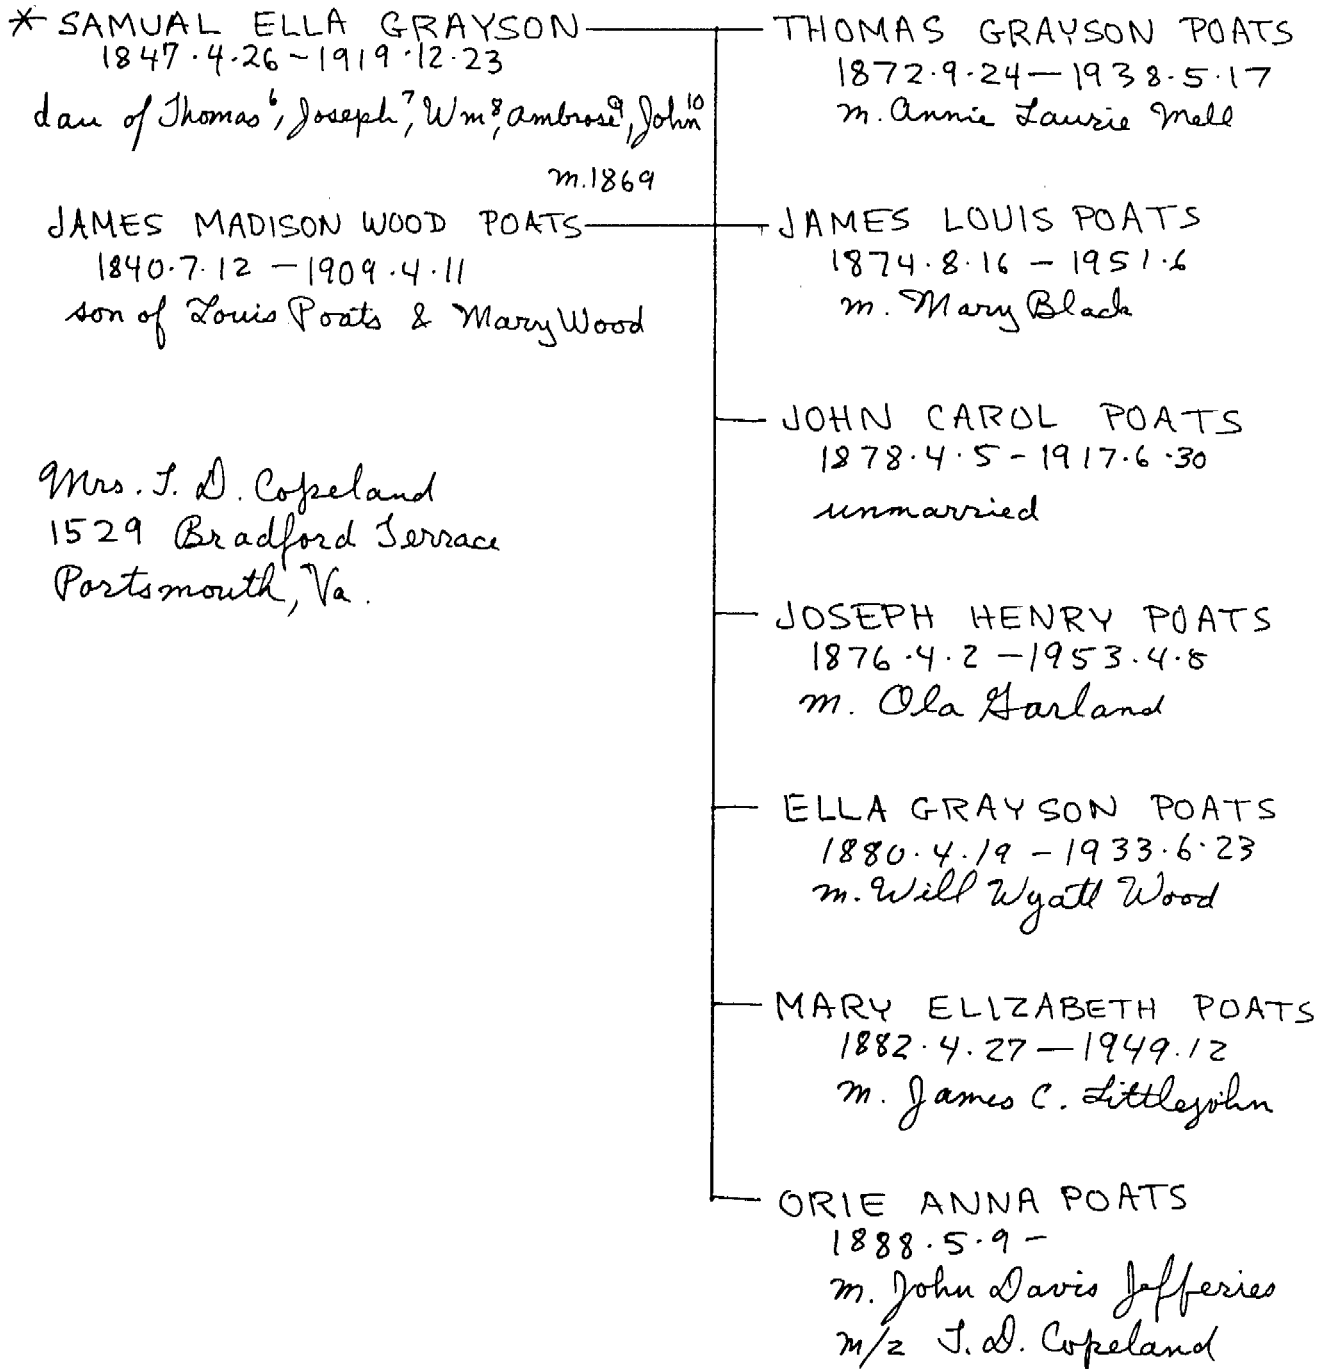 * SAMUAL ELLA GRAYSON
1847.4.26 - 1919.12.23
dau of Thomas⁶, Joseph⁷, Wm⁸, Ambrose⁹, John¹⁰
m.1869
JAMES MADISON WOOD POATS
1840.7.12 - 1909.4.11
son of Louis Poats & Mary Wood
Mrs. T. D. Copeland
1529 Bradford Terrace
Portsmouth, Va.
THOMAS GRAYSON POATS
1872.9.24 - 1938.5.17
m. Annie Laurie Mell
JAMES LOUIS POATS
1874.8.16 - 1951.6
m. Mary Black
JOHN CAROL POATS
1878.4.5 - 1917.6.30
unmarried
JOSEPH HENRY POATS
1876.4.2 - 1953.4.8
m. Ola Garland
ELLA GRAYSON POATS
1880.4.19 - 1933.6.23
m. Will Wyatt Wood
MARY ELIZABETH POATS
1882.4.27 - 1949.12
m. James C. Littlejohn
ORIE ANNA POATS
1888.5.9 -
m. John Davis Jefferies
m/2 T. D. Copeland